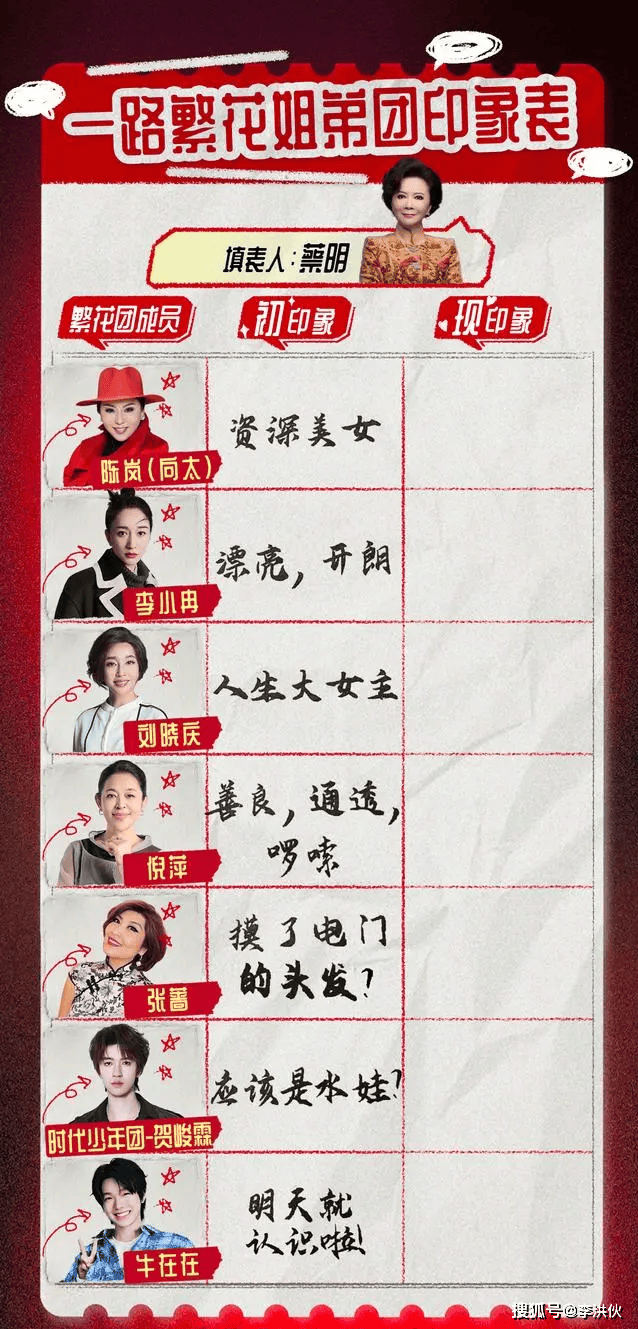 一路繁花姐弟团印象表
填表人：蔡明
繁花团成员 初印象 现印象
陈岚（向太）
资深美女
李小冉
漂亮，开朗
刘晓庆
人生大女主
倪萍
善良，通透，
啰嗦
张蔷
摸了电门
的头发？
时代少年团-贺峻霖
应该是水娃？
牛在在
明天就
认识啦！
搜狐号@李洪伙